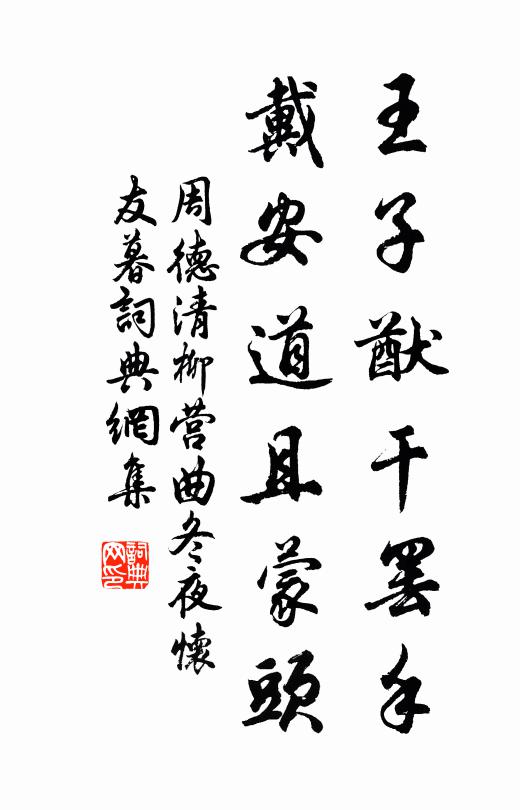 王子猷干罢手
戴安道且蒙頭
周德清柳营曲冬夜懷
友暮詞典網集
詞典
网印